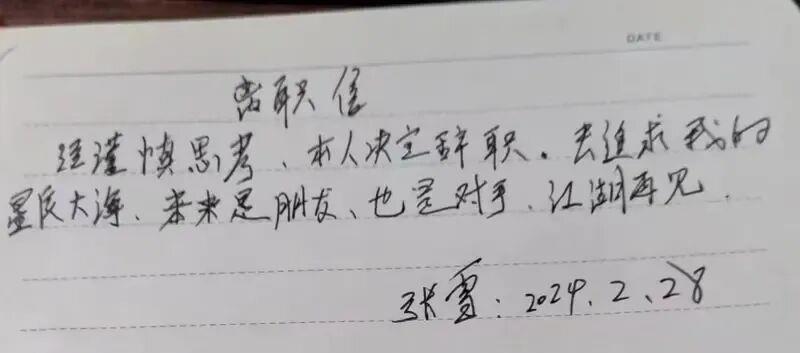 DATE
离职信
经谨慎思考、本人决定辞职。去追求我的
星辰大海、未来是朋友、也是对手、江湖再见.
张雪. 2024.2、28